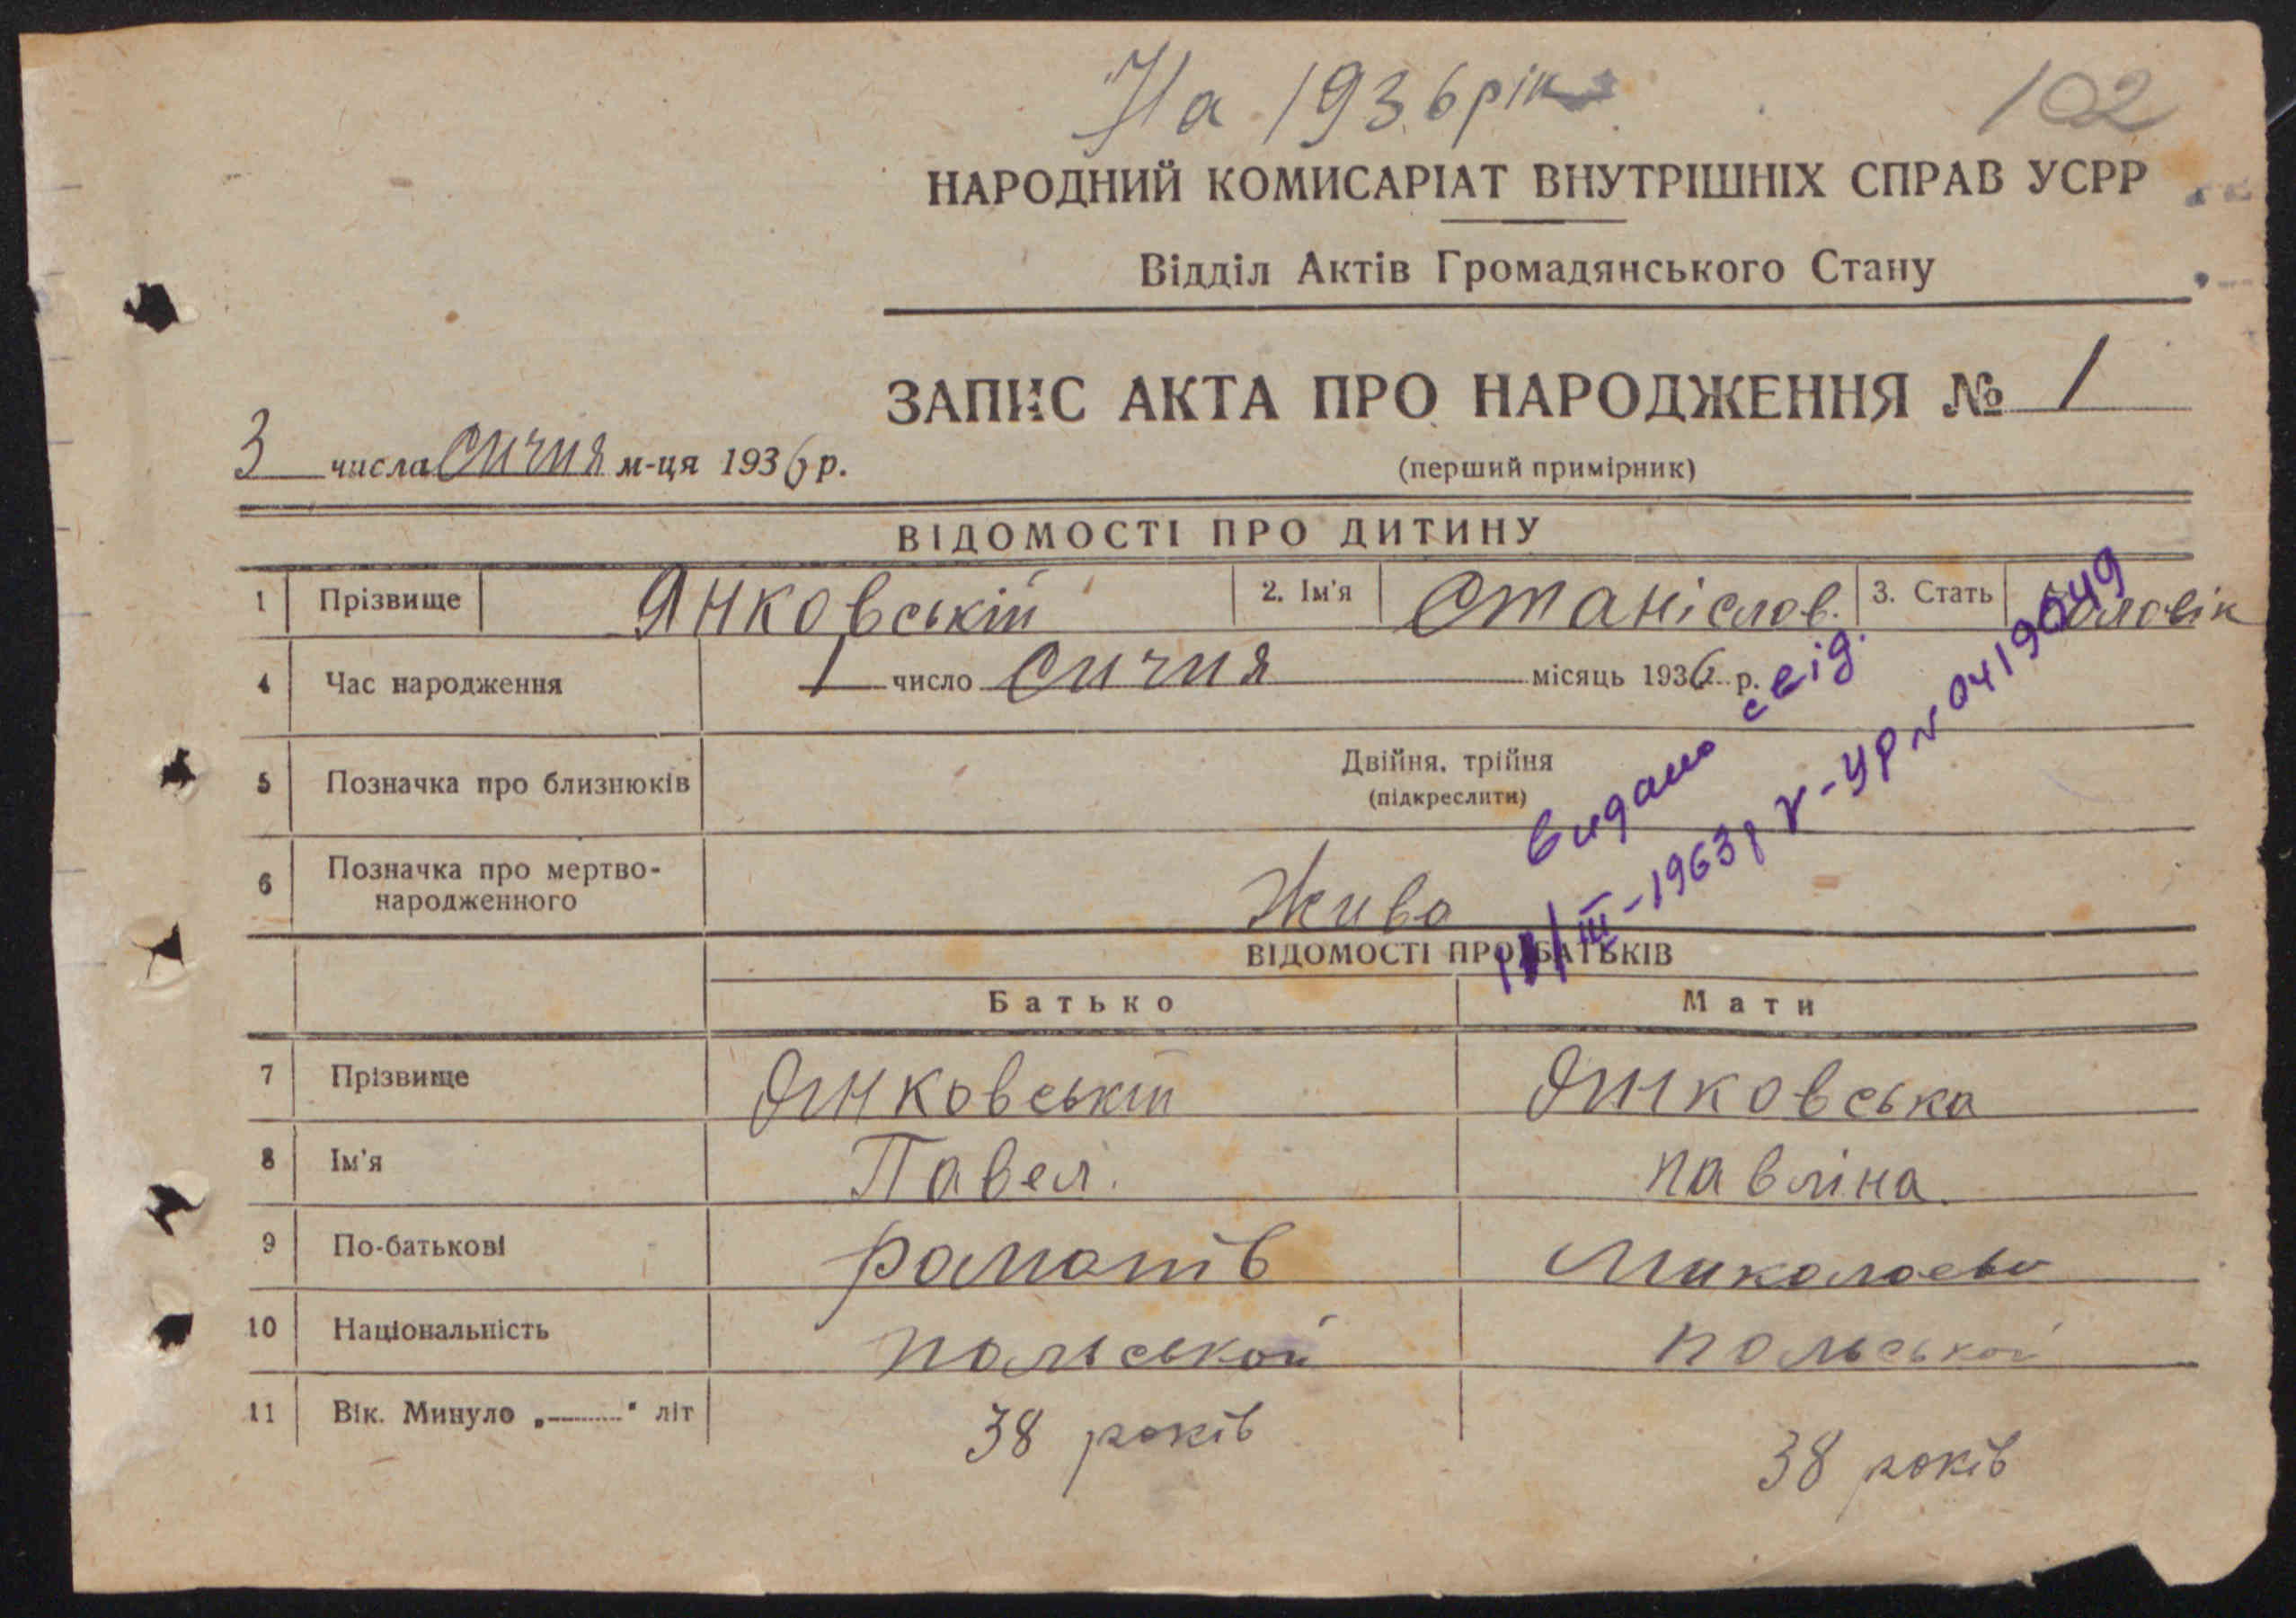 На 1936 рік
102
НАРОДНИЙ КОМИСАРІАТ ВНУТРІШНІХ СПРАВ УСРР
Відділ Актів Громадянського Стану
ЗАПИС АКТА ПРО НАРОДЖЕННЯ № 1
3 числа Сичня м-ця 1936 р.
(перший примірник)
ВІДОМОСТІ ПРО ДИТИНУ
1 Прізвище Янковській 2. Ім'я Станіслав. 3. Стать
4 Час народження 1 число Сичня місяць 1936 р.
5 Позначка про близнюків Двійня, трійня
(підкреслити)
6 Позначка про мертво-
народженного Живо
видано свід.
III-1963р V-УР № 0419649
ВІДОМОСТІ ПРО БАТЬКІВ
Батько Мати
7 Прізвище Янковській Янковська
8 Ім'я Павел. Павліна.
9 По-батькові Миколаевн
10 Національність польской польской
11 Вік. Минуло „ " літ 38 років 38 років